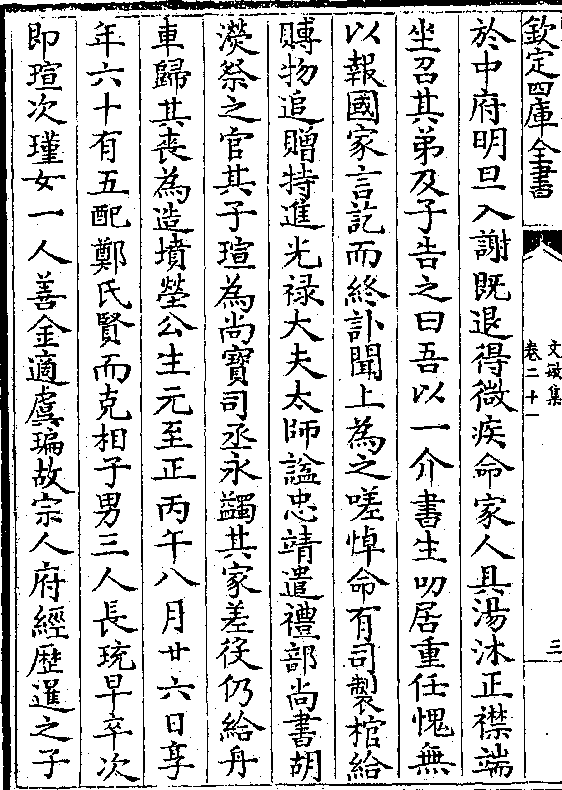 欽定四庫全書
文敏集
卷二十一
三
於中府明旦入謝既退得微疾命家人具湯沐正襟端
坐召其弟及子告之曰吾以一介書生叨居重任愧無
以報國家言訖而終訃聞上為之嗟悼命有司製棺給
賻物追贈特進光禄大夫太師諡忠靖遣禮部尚書胡
濙祭之官其子瑄為尚寳司丞永蠲其家差役仍給舟
車歸其喪為造墳塋公生元至正丙午八月廿六日享
年六十有五配鄭氏賢而克相子男三人長琉早卒次
即瑄次瑾女一人善金適虞瑞故宗人府經歴暹之子